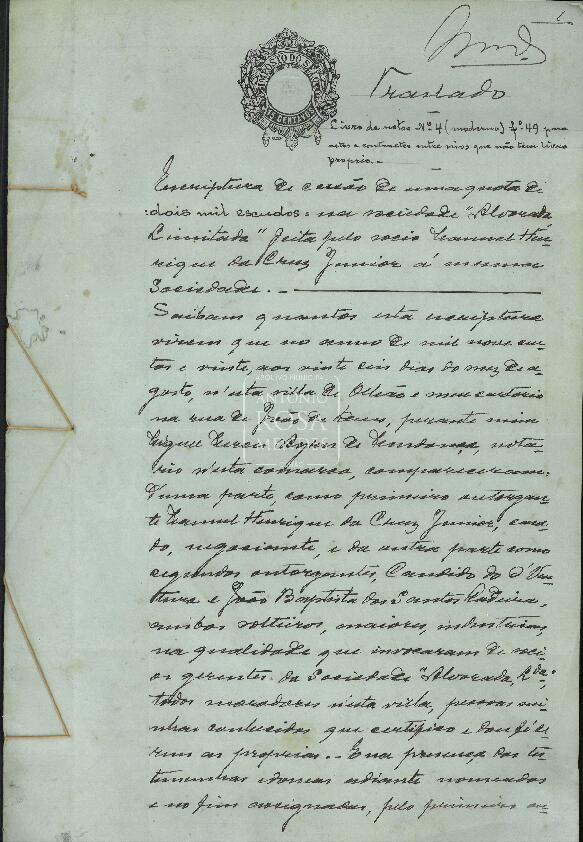 1
IMPOSTO DO SELO
Traslado
Livro de notas Nº 4 (moderno) fº 49 para
actos e contractos entre vivos que não tem livro
proprio. —
Escriptura de cessão de uma quota de
dois mil escudos = na sociedade "Alvorada
Limitada" feita pelo socio Manuel Hen-
rique da Cruz Junior á mesma
Sociedade. —
Saibam quantos esta escriptura
virem que no anno de mil nove cen-
tos e vinte, aos vinte seis dias do mez de a-
gosto, n'esta villa de Olhão e meu cartorio
na rua de João de Deus, perante mim
Miguel de Mendonça, nota-
rio n'esta comarca, compareceram:
D'uma parte, como primeiro outorgan-
te Manuel Henrique da Cruz Junior, casa-
do, negociante, e da outra parte como
segundos outorgantes, Candido do O' Ven-
tura e João Baptista dos Santos
ambos solteiros, maiores, industriaes,
na qualidade que invocaram de soci-
os gerentes da Sociedade "Alvorada, Lda",
todos moradores n'esta villa, pessoas mi-
nhas conhecidas que certifico e dou fé se-
rem as proprias. — E na presença das tes-
temunhas idoneas adiante nomeadas
e no fim assignadas, pelo primeiro ou-
ARQUIVO MUNICIPAL
ANTÓNIO
ROSA
MENDES